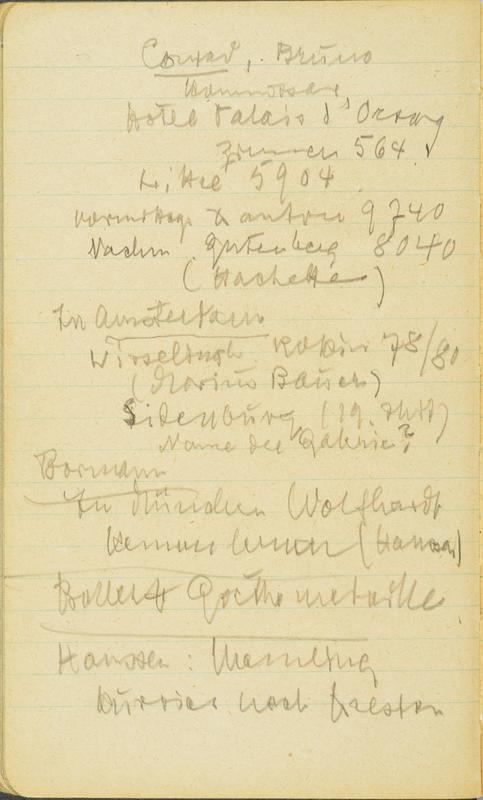 Conrad, Bruno
Kommissar
Hotel Palais d'Orsay
Zimmer 564
Littré 5904
vormittags Danton 9740
Nachm. Gutenberg 8040
(Hachette)
In Amsterdam
Wisselingh Rokin 78/80
(Marius Bauer)
(19. Jhdt)
Name der Galerie?
Bormann
In München Wolfhardt
kennen lernen
Bollert Goethe medaille
Hanssen: Memling
Kurier nach Dresden